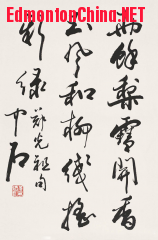 EdmontonChina.NET
雨餘梨雪開香
玉風和柳綫搖
新緑
鄭光祖句
中石